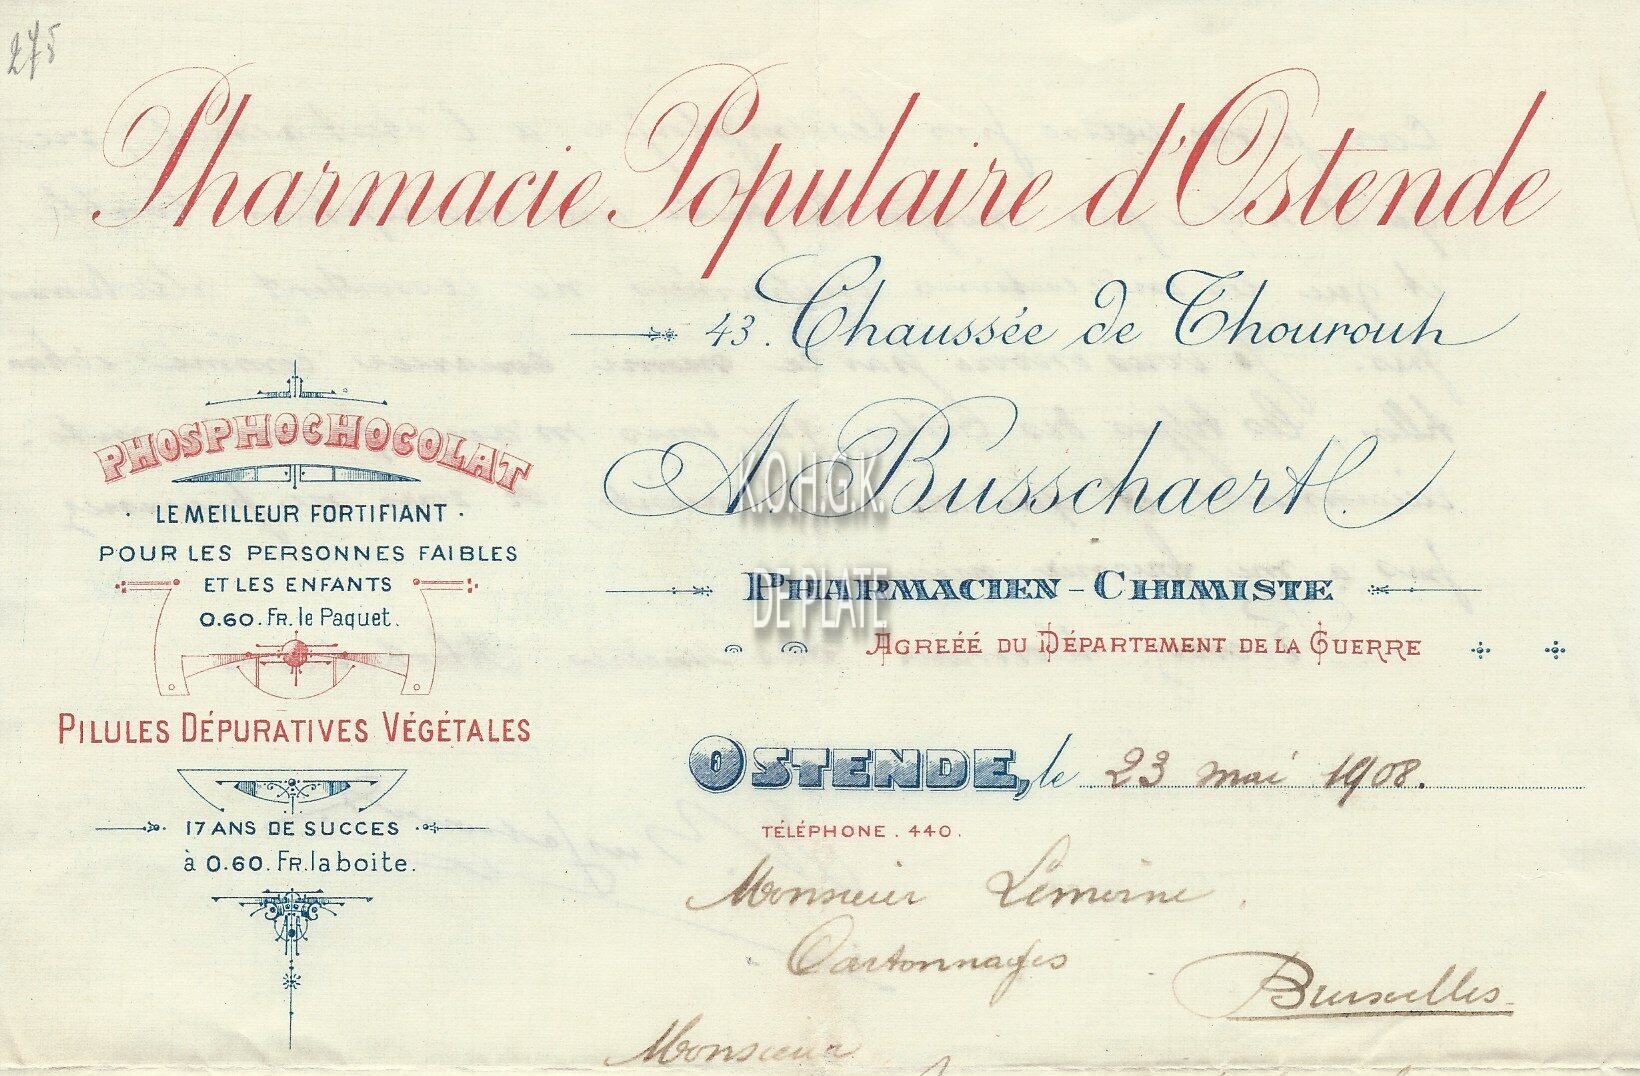 275
Pharmacie Populaire d'Ostende
43. Chaussée de Thourout
A. Busschaert.
PHARMACIEN-CHIMISTE
AGREÉÉ DU DÉPARTEMENT DE LA GUERRE
PHOSPHOCHOCOLAT
· LE MEILLEUR FORTIFIANT ·
POUR LES PERSONNES FAIBLES
ET LES ENFANTS
0.60. FR. le Paquet.
PILULES DÉPURATIVES VÉGÉTALES
17 ANS DE SUCCES
à 0.60. FR. la boite.
OSTENDE, le 23 mai 1908.
TÉLÉPHONE. 440.
Monsieur Lémoine.
Cartonnages
Bruxelles.
Monsieur
K.O.H.G.K.
DE PLATE